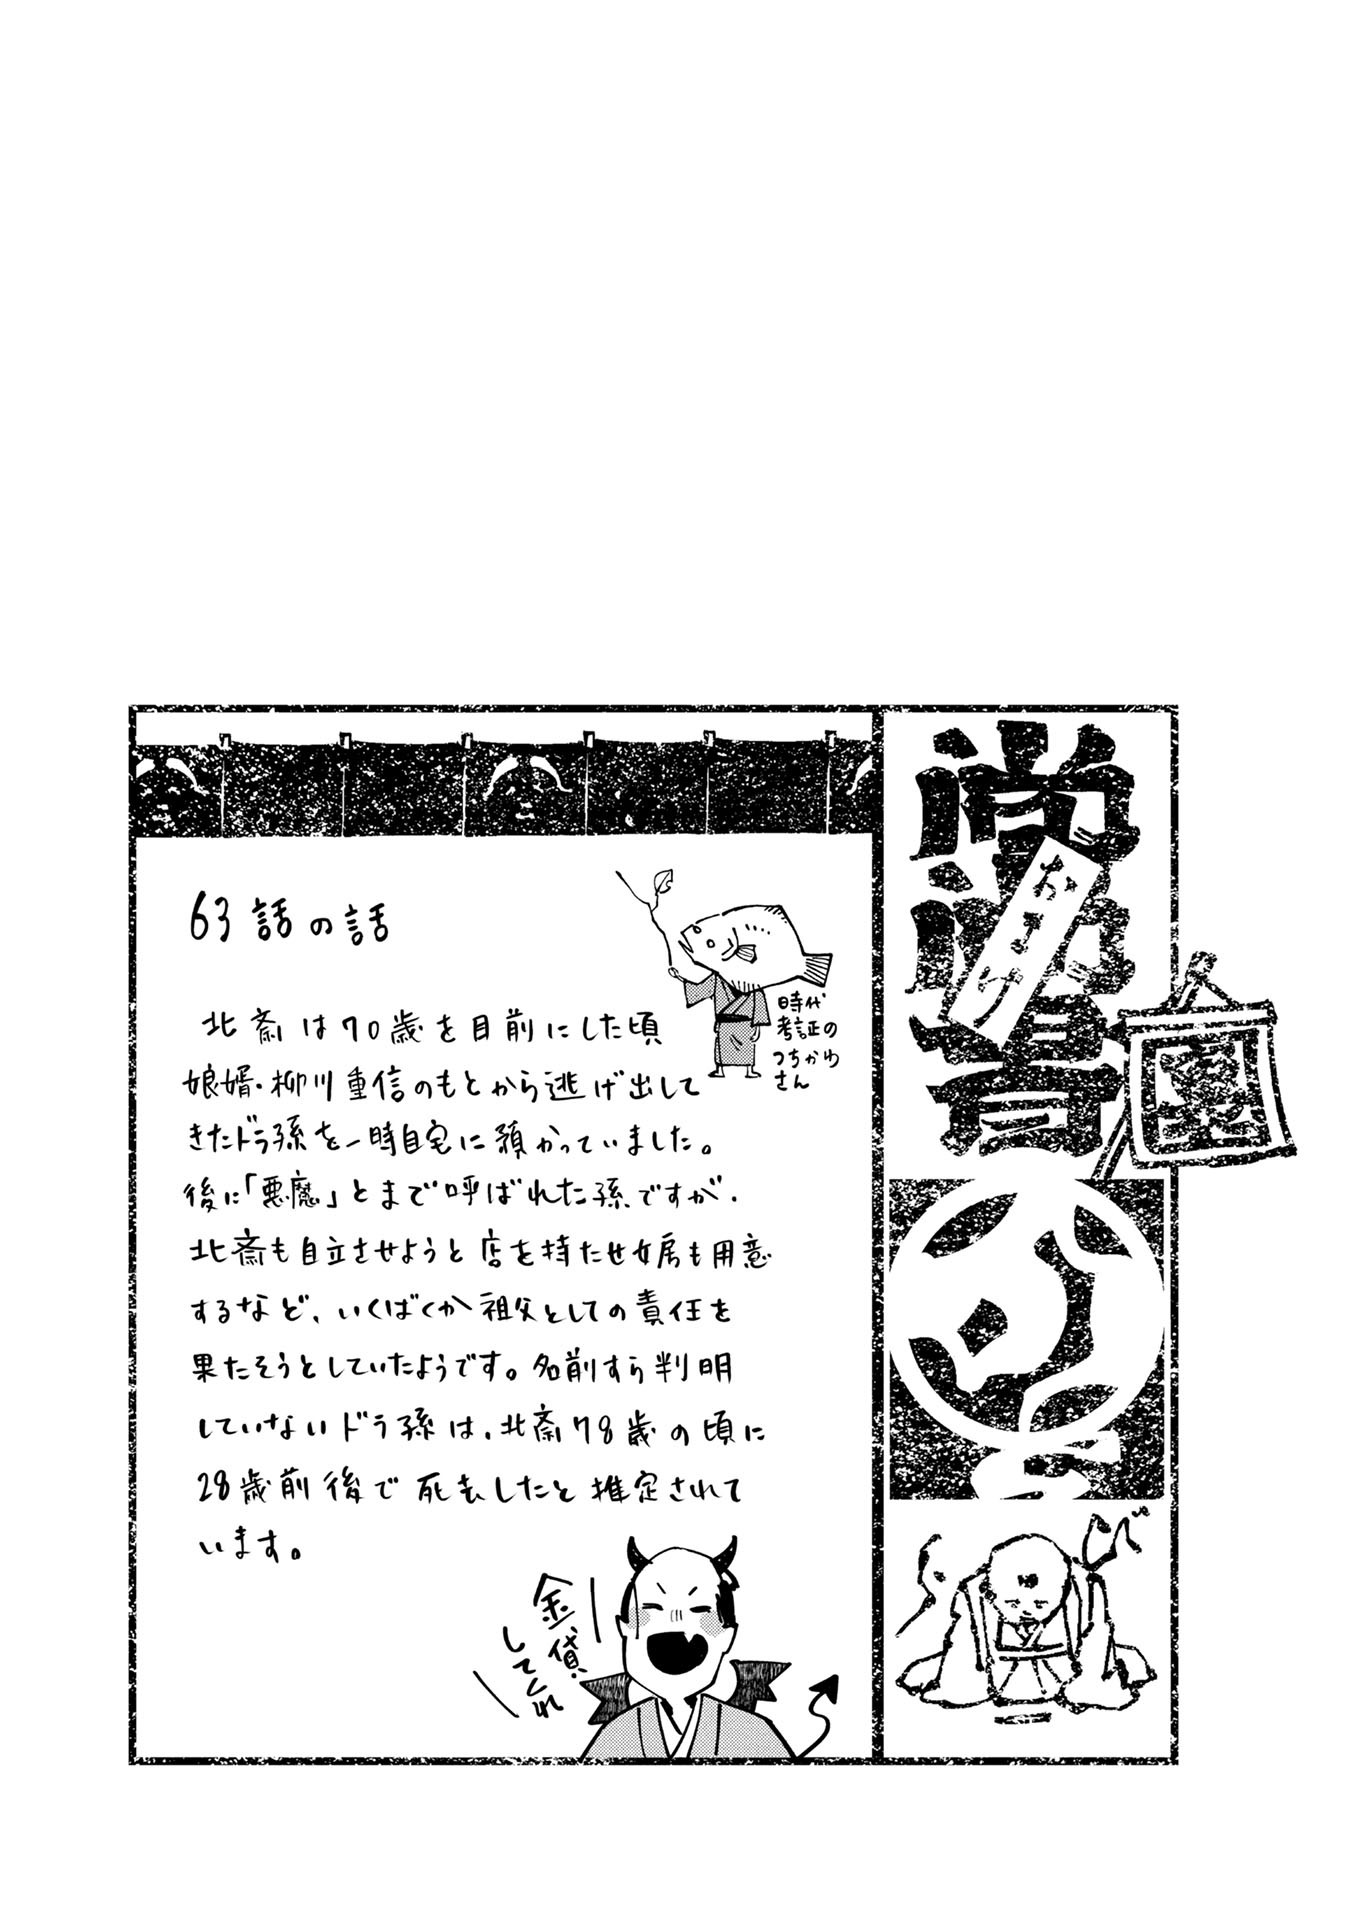 63話の話
北斎は70歳を目前にした頃
娘婿・柳川重信のもとから逃げ出して
きたドラ孫を一時自宅に預かっていました。
後に「悪魔」とまで呼ばれた孫ですが、
北斎も自立させようと店を持たせ女房も用意
するなど、いくばくか祖父としての責任を
果たそうとしていたようです。名前すら判明
していないドラ孫は、北斎78歳の頃に
28歳前後で死去したと推定されて
います。
時代
考証の
つちかわ
さん
金貸
してくれ
おまけ